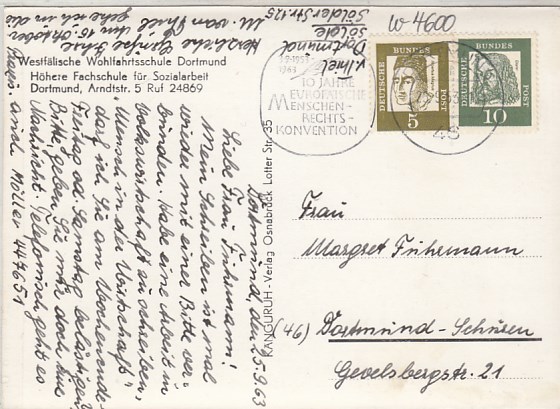 Westfälische Wohlfahrtsschule Dortmund
Höhere Fachschule für Sozialarbeit
Dortmund, Arndtstr. 5 Ruf 24869
KANGURUH - Verlag Osnabrück Lotter Str. 35
Dortmund, den 5.9.63
Liebe Frau Fuhrmann!
Mein Schreiben ist mal
wieder mit einer Bitte ver-
bunden. Habe eine Arbeit in
Volkswirtschaft zu schreiben,
"Mensch in der Wirtschaft"
darf ich Sie am Wochenende
Freitag od. Samstag belästigen?
Bitte, geben Sie mir doch
Nachricht. Telefonisch geht es
Möller 447651
gehe ich in die
Herzliche Grüße Ihre
M. van
Dortmund
Sölde
Sölderstr. 125
W 4600
3.9.1953
1963
10 JAHRE
EUROPÄISCHE
MENSCHEN-
RECHTS-
KONVENTION
46
DEUTSCHE
BUNDES
POST
5
DEUTSCHE
BUNDES
POST
10
Frau
Margret Fuhrmann
(46) Dortmund-Schüren
Gevelsbergstr. 21